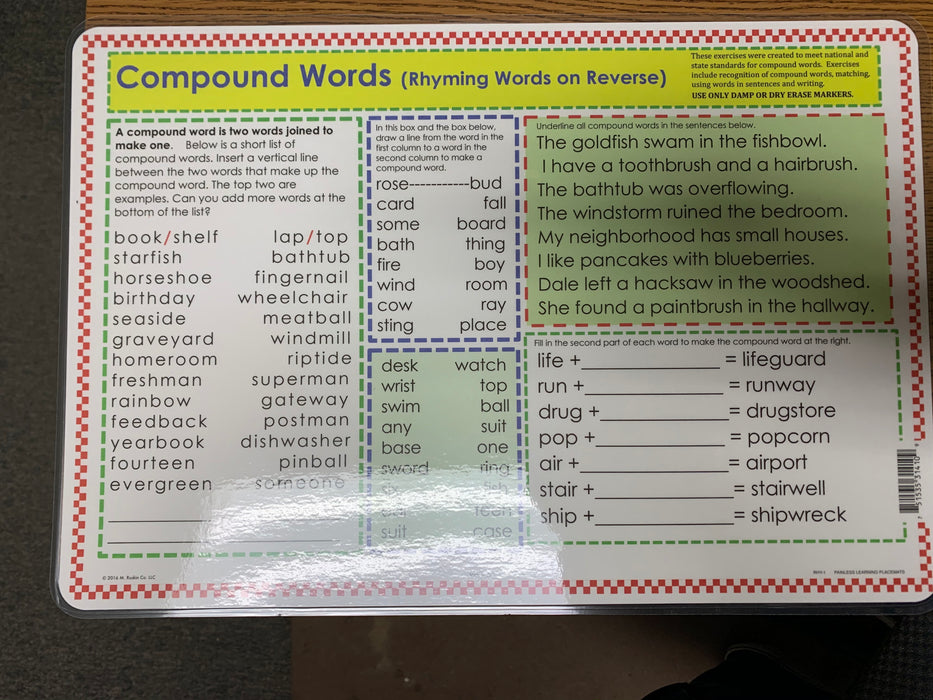 Compound Words (Rhyming Words on Reverse)
These exercises were created to meet national and
state standards for compound words. Exercises
include recognition of compound words, matching,
using words in sentences and writing.
USE ONLY DAMP OR DRY ERASE MARKERS.
A compound word is two words joined to
make one. Below is a short list of
compound words. Insert a vertical line
between the two words that make up the
compound word. The top two are
examples. Can you add more words at the
bottom of the list?
book/shelf lap/top
starfish bathtub
horseshoe fingernail
birthday wheelchair
seaside meatball
graveyard windmill
homeroom riptide
freshman superman
rainbow gateway
feedback postman
yearbook dishwasher
fourteen pinball
evergreen someone
In this box and the box below,
draw a line from the word in the
first column to a word in the
second column to make a
compound word.
rose-----------bud
card fall
some board
bath thing
fire boy
wind room
cow ray
sting place
desk watch
wrist top
swim ball
any suit
base one
sword ring
fish
teen
suit case
Underline all compound words in the sentences below.
The goldfish swam in the fishbowl.
I have a toothbrush and a hairbrush.
The bathtub was overflowing.
The windstorm ruined the bedroom.
My neighborhood has small houses.
I like pancakes with blueberries.
Dale left a hacksaw in the woodshed.
She found a paintbrush in the hallway.
Fill in the second part of each word to make the compound word at the right.
life +____________ = lifeguard
run +____________ = runway
drug +____________ = drugstore
pop +____________ = popcorn
air +____________ = airport
stair +____________ = stairwell
ship +____________ = shipwreck
© 2016 M. Ruskin Co. LLC
PAINLESS LEARNING PLACEMATS